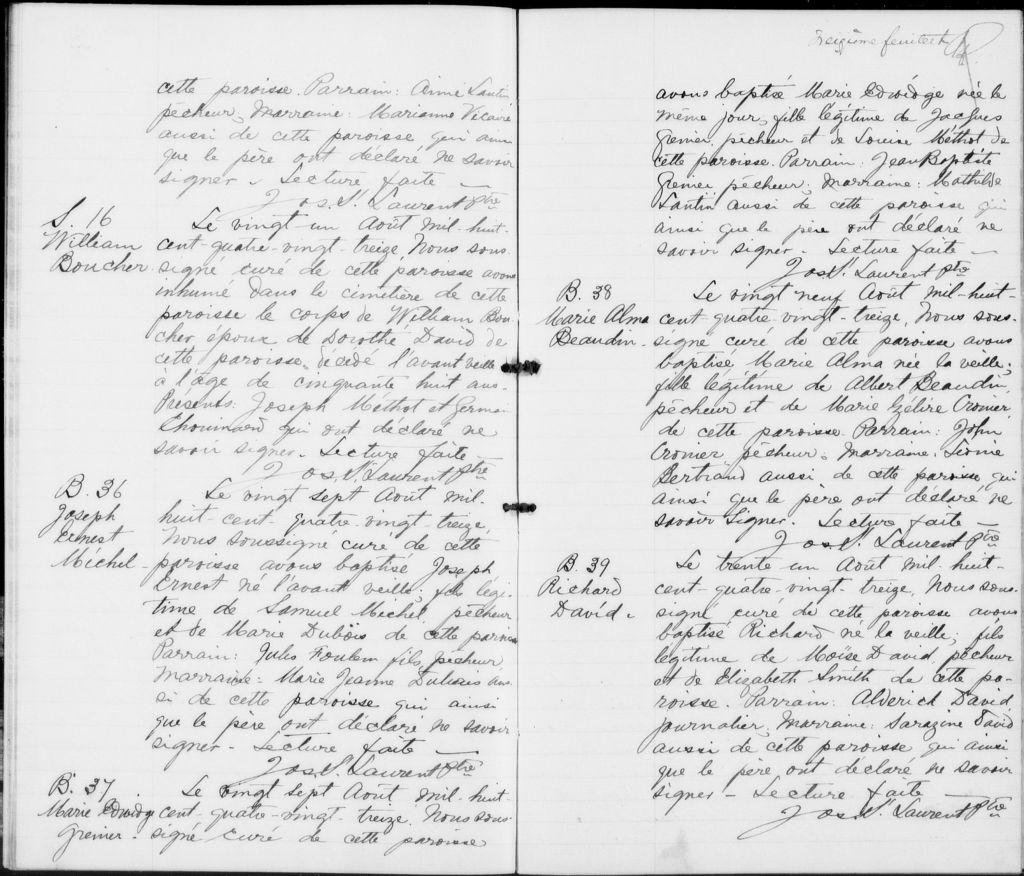 cette paroisse. Parrain: Aimé Lantin
pêcheur, Marraine: Marianne Vicaire
aussi de cette paroisse, qui ainsi
que le père ont déclaré ne savoir
signer - Lecture faite -
Jos. St. Laurent Ptre
S. 16
William
Boucher.
Le vingt-un Août mil-huit-
cent-quatre-vingt-treize, Nous sous
signé curé de cette paroisse avons
inhumé dans le cimetière de cette
paroisse le corps de William Bou-
cher époux de Dorothé David de
cette paroisse, décédé l'avant veille
à l'âge de cinquante huit ans.
Présents: Joseph Méthot et Germain
Chouinard qui ont déclaré ne
savoir signer. Lecture faite -
Jos. St. Laurent Ptre
B. 36
Joseph
Ernest
Michel -
Le vingt sept Août mil.
huit-cent-quatre-vingt-treize
Nous soussigné curé de cette
paroisse avons baptisé Joseph
Ernest né l'avant veille, fils légi-
time de Samuel Michel, pêcheur
et de Marie Dubois de cette paroisse
Parrain: Jules Foulem fils, pêcheur,
Marraine: Marie Jeanne Dubois aus-
si de cette paroisse qui ainsi
que le père ont déclaré ne savoir
signer - Lecture faite -
Jos. St. Laurent Ptre
B. 37
Marie Edwidge
Grenier -
Le vingt sept Août mil-huit-
cent-quatre-vingt-treize, Nous sous-
signé curé de cette paroisse
feuillet
avons baptisé Marie Edwidge née le
même jour, fille légitime de Jacques
Grenier, pêcheur et de Louise Méthot de
cette paroisse. Parrain: Jean Baptiste
Grenier, pêcheur; Marraine: Mathilde
Lantin aussi de cette paroisse qui
ainsi que le père ont déclaré ne
savoir signer - Lecture faite -
Jos. St. Laurent Ptre
B. 38
Marie Alma
Beaudin -
Le vingt neuf Août mil-huit-
cent-quatre-vingt-treize, Nous sous-
signé curé de cette paroisse avons
baptisé Marie Alma née la veille;
fille légitime de Albert Beaudin,
pêcheur et de Marie Cronier,
de cette paroisse. Parrain: John
Cronier pêcheur, Marraine:
Bertrand aussi de cette paroisse, qui
ainsi que le père ont déclaré ne
savoir signer. Lecture faite -
Jos. St. Laurent Ptre
B. 39
Richard
David -
Le trente-un Août mil-huit-
cent-quatre-vingt-treize, Nous sous-
signé curé de cette paroisse avons
baptisé Richard né la veille, fils
légitime de Moïse David, pêcheur
et de Elizabeth Smith de cette pa-
roisse. Parrain: Alderick David
journalier, Marraine: Sarazine David
aussi de cette paroisse qui ainsi
que le père ont déclaré ne savoir
signer - Lecture faite -
Jos. St. Laurent Ptre